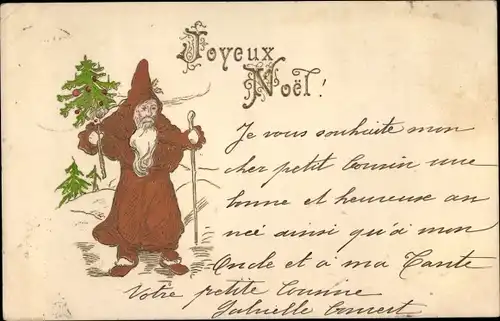 Joyeux
Noël!
Je vous souhaite mon
cher petit Cousin une
bonne et heureuse an
neé ainsi qu'à mon
Oncle et à ma Tante
Votre petite Cousine
Gabrielle